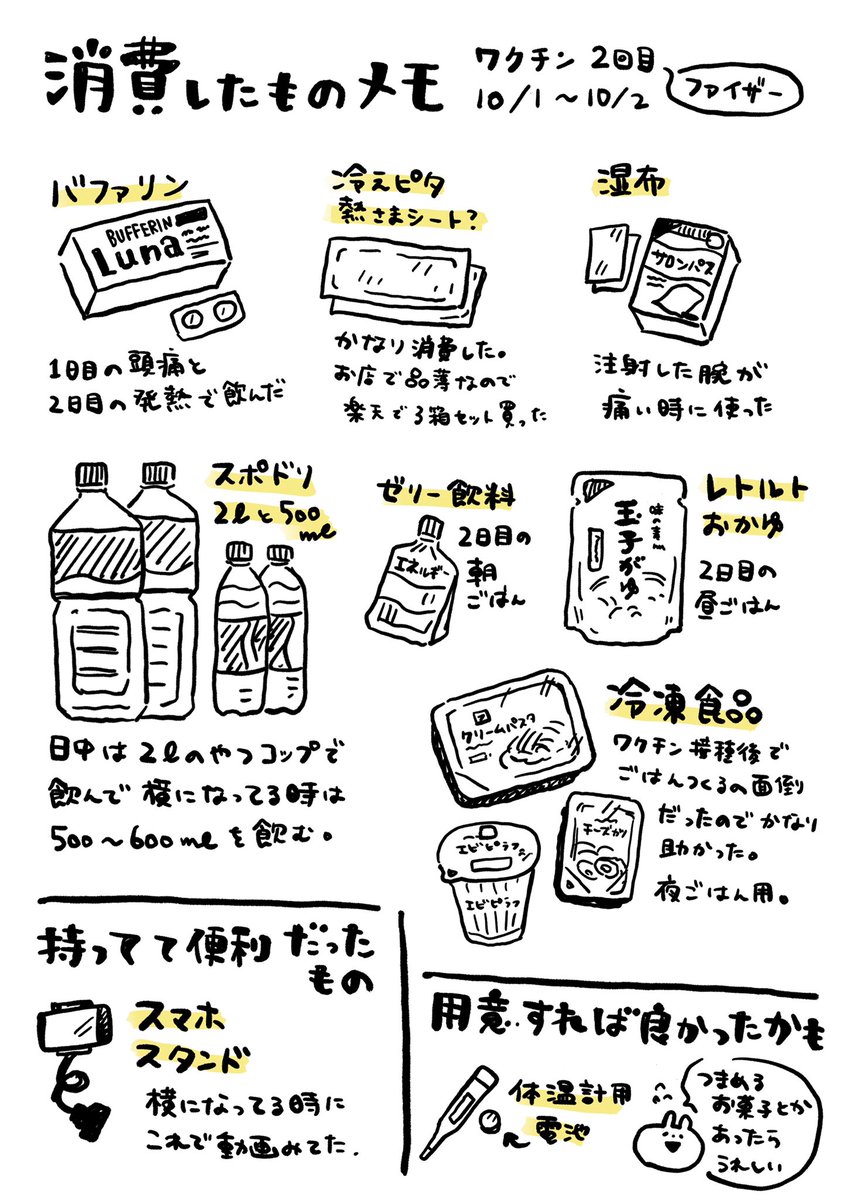 消費したものメモ
ワクチン 2回目
10/1～10/2
ファイザー
バファリン
BUFFERIN
Luna
1日目の頭痛と
2日目の発熱で飲んだ
冷えピタ
熱さまシート?
かなり消費した。
お店で品薄なので
楽天で3箱セット買った
湿布
サロンパス
注射した腕が
痛い時に使った
スポドリ
2lと500
ml
日中は2lのやつコップで
飲んで横になってる時は
500～600mlを飲む。
ゼリー飲料
エネルギー
2日目の
朝
ごはん
レトルト
おかゆ
味の素
玉子がゆ
2日目の
昼ごはん
冷凍食品
クリームパスタ
エビピラフ
エビピラフ
ワクチン接種後で
ごはんつくるの面倒
だったのでかなり
助かった。
夜ごはん用。
持ってて便利だった
もの
スマホ
スタンド
横になってる時に
これで動画みてた.
用意すれば良かったかも
体温計用
電池
つまめる
お菓子とか
あったら
うれしい